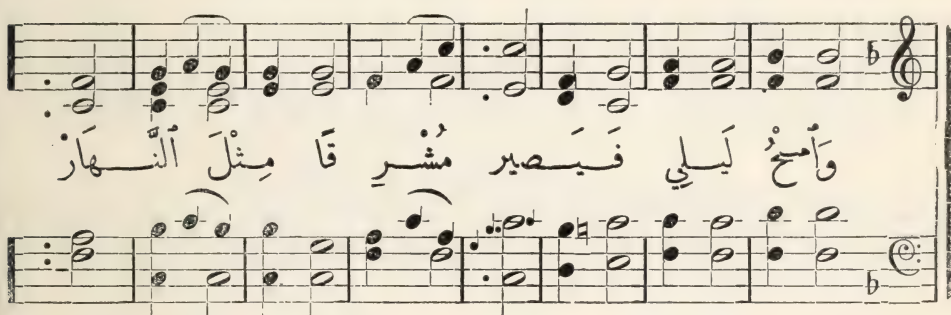 وَٱمسحُ لَيلي فَيَـصير مُشْرِ قًا مِثْلَ ٱلنَّـهَارْ